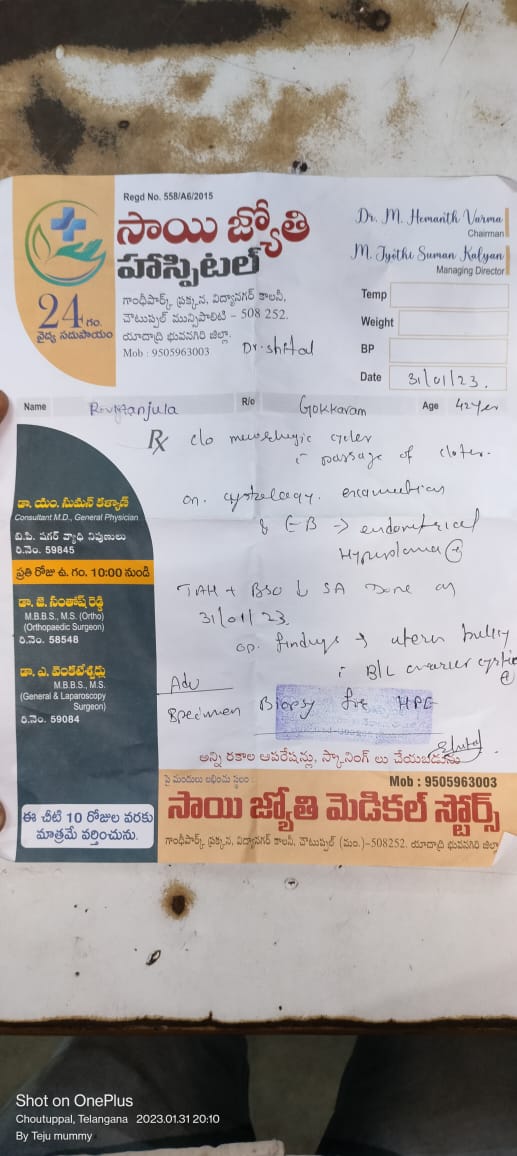 Regd No. 558/A6/2015
సాయి జ్యోతి
హాస్పిటల్
24 గం.
వైద్య సదుపాయం
గాంధీపార్క్ ప్రక్కన, విద్యానగర్ కాలనీ,
చౌటుప్పల్ మున్సిపాలిటి - 508 252.
యాదాద్రి భువనగిరి జిల్లా.
Mob : 9505963003
Dr. M. Hemanth Varma
Chairman
M. Jyothi Suman Kalyan
Managing Director
Temp
Weight
BP
Date 31/01/23.
Name
R/o Gokkaram
Age 42yer
Rx c/o cycles
passage of
on.
& EB → endometrical
TAH + BSO ↓ SA Done on
31/01/23.
op. findings → bulky
B/L cystic
Adv
Specimen Biopsy for HPE
డా. యం. సుమన్ కళ్యాణ్
Consultant M.D., General Physician
బి.పి. షుగర్ వ్యాధి నిపుణులు
రి.నెం. 59845
ప్రతి రోజు ఉ. గం. 10:00 నుండి
డా. జె. సంతోష్ రెడ్డి
M.B.B.S., M.S. (Ortho)
(Orthopaedic Surgeon)
రి.నెం. 58548
డా. ఎ. వెంకటేశ్వర్లు
M.B.B.S., M.S.
(General & Laparoscopy
Surgeon)
రి.నెం. 59084
ఈ చీటి 10 రోజుల వరకు
మాత్రమే వర్తించును.
అన్ని రకాల ఆపరేషన్లు, స్కానింగ్ లు చేయబడును
పై మందులు లభించు స్థలం :
Mob : 9505963003
సాయి జ్యోతి మెడికల్ స్టోర్స్
గాంధీపార్క్ ప్రక్కన, విద్యానగర్ కాలనీ, చౌటుప్పల్ (మం.)-508252. యాదాద్రి భువనగిరి జిల్లా
Shot on OnePlus
Choutuppal, Telangana 2023.01.31 20:10
By Teju mummy